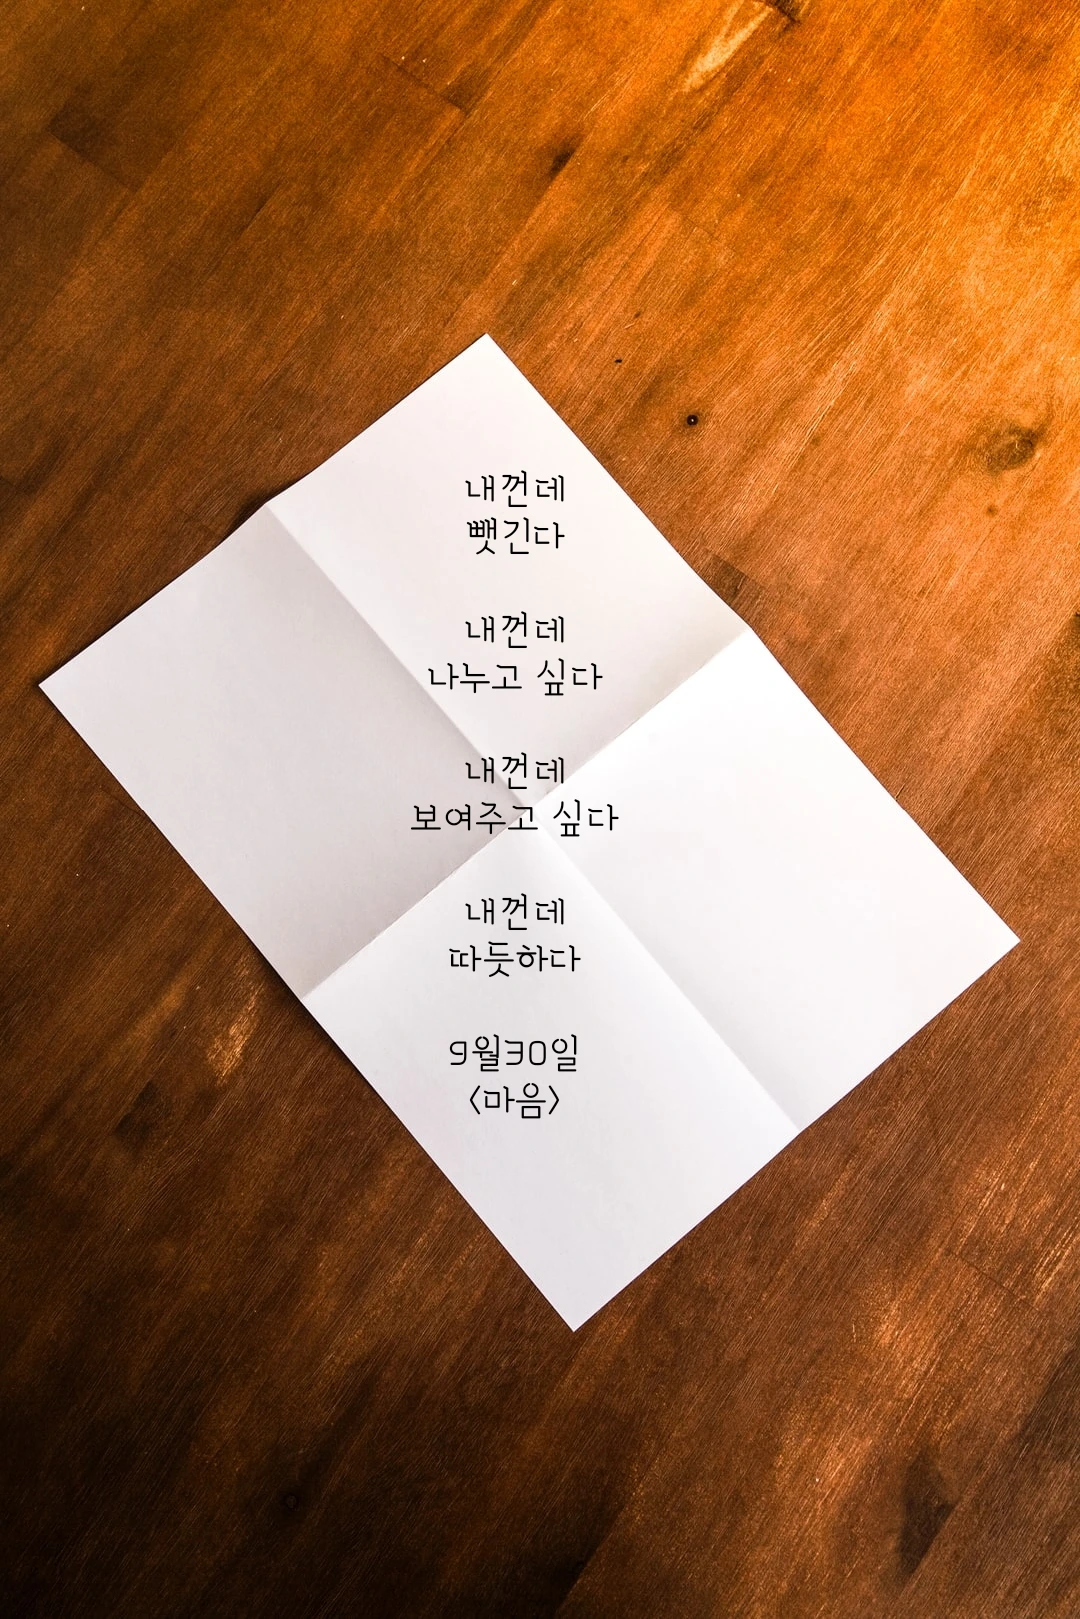 내껀데
뺏긴다
내껀데
나누고 싶다
내껀데
보여주고 싶다
내껀데
따듯하다
9월30일
<마음>